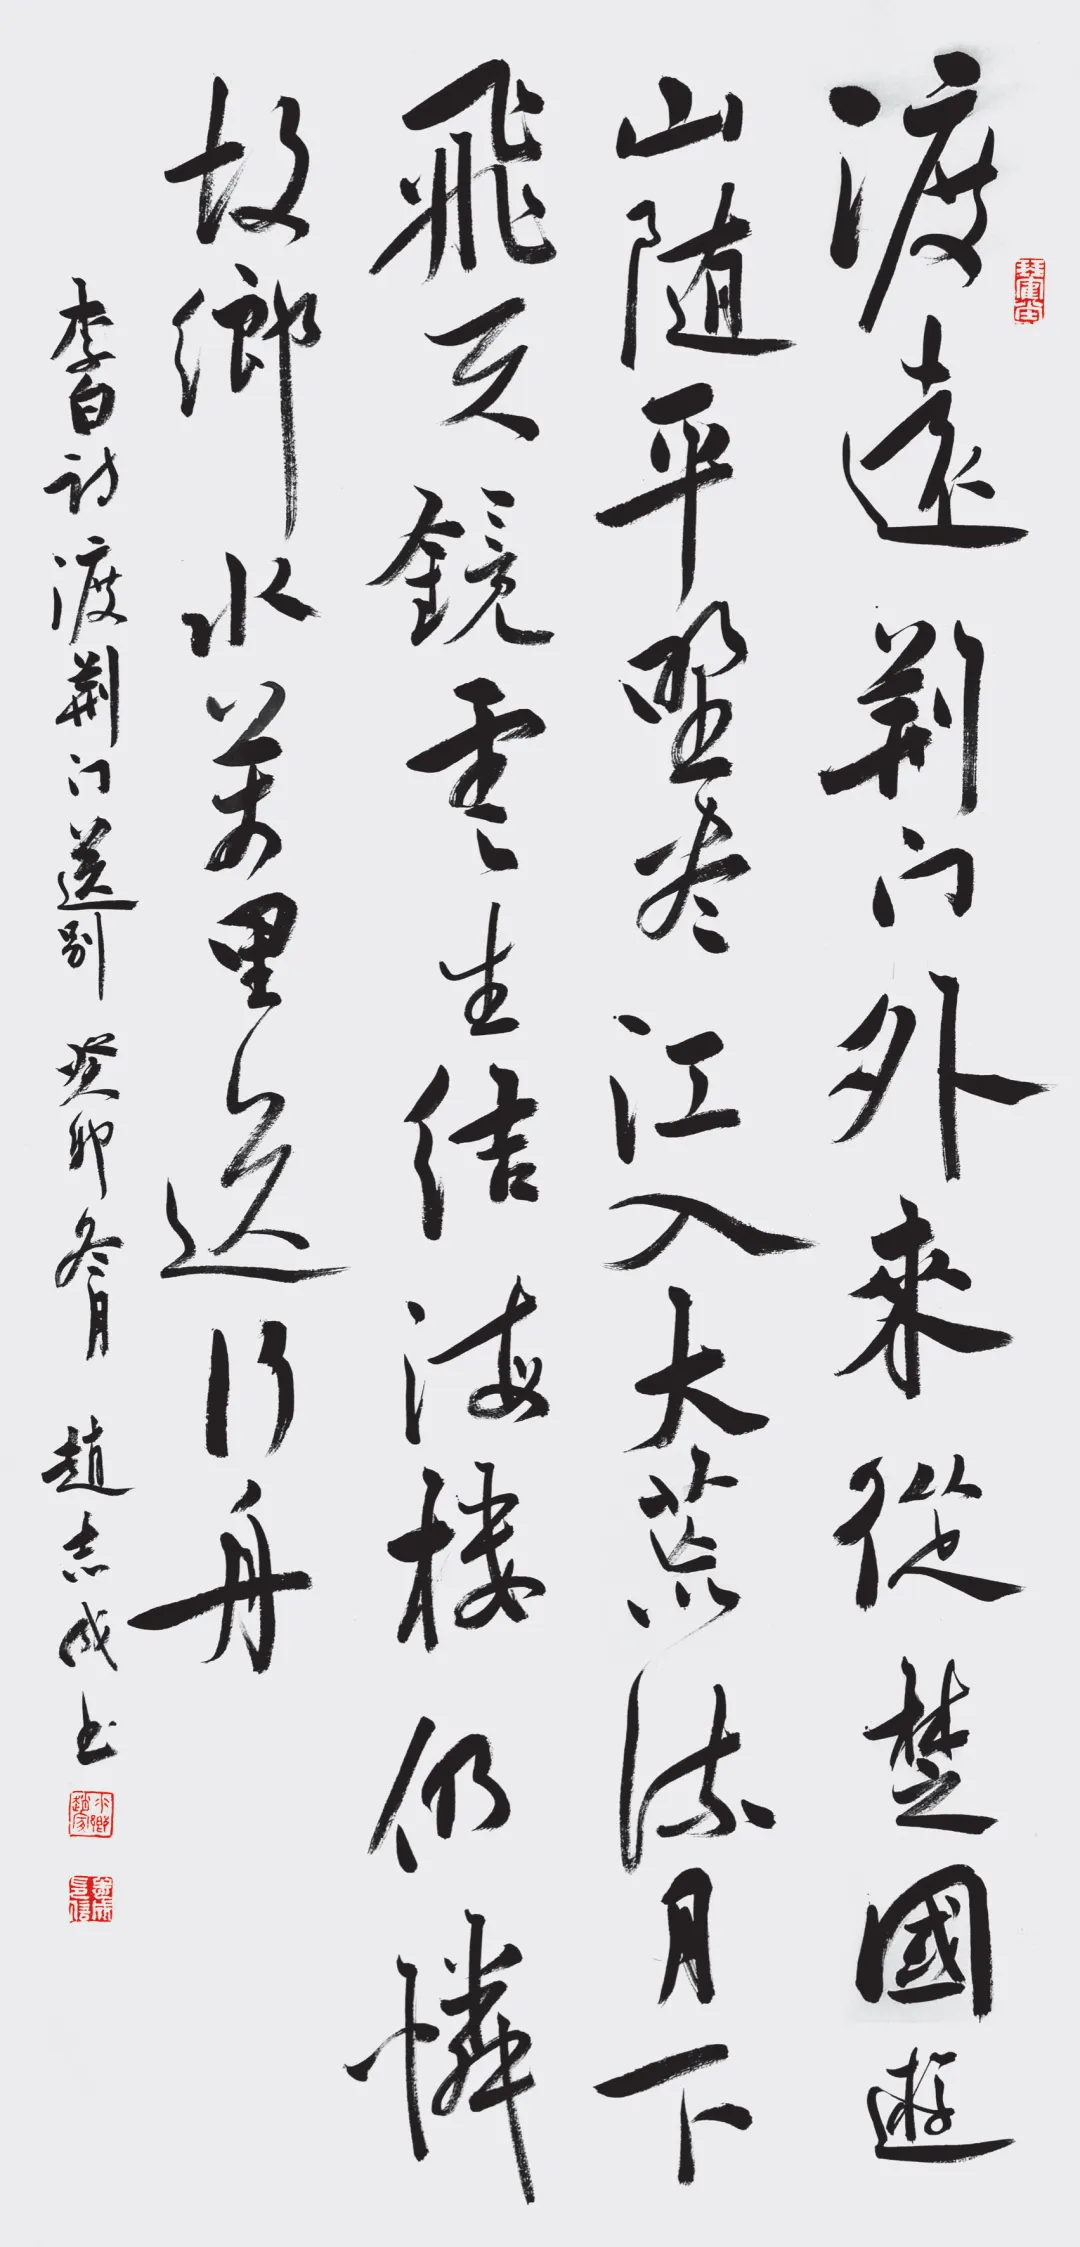 渡遠荆门外來從楚國遊
山随平野尽江入大荒流月下
飛天鏡雲生结海楼仍憐
故鄉水萬里送行舟
李白诗渡荆门送别 癸卯冬月 趙志成书